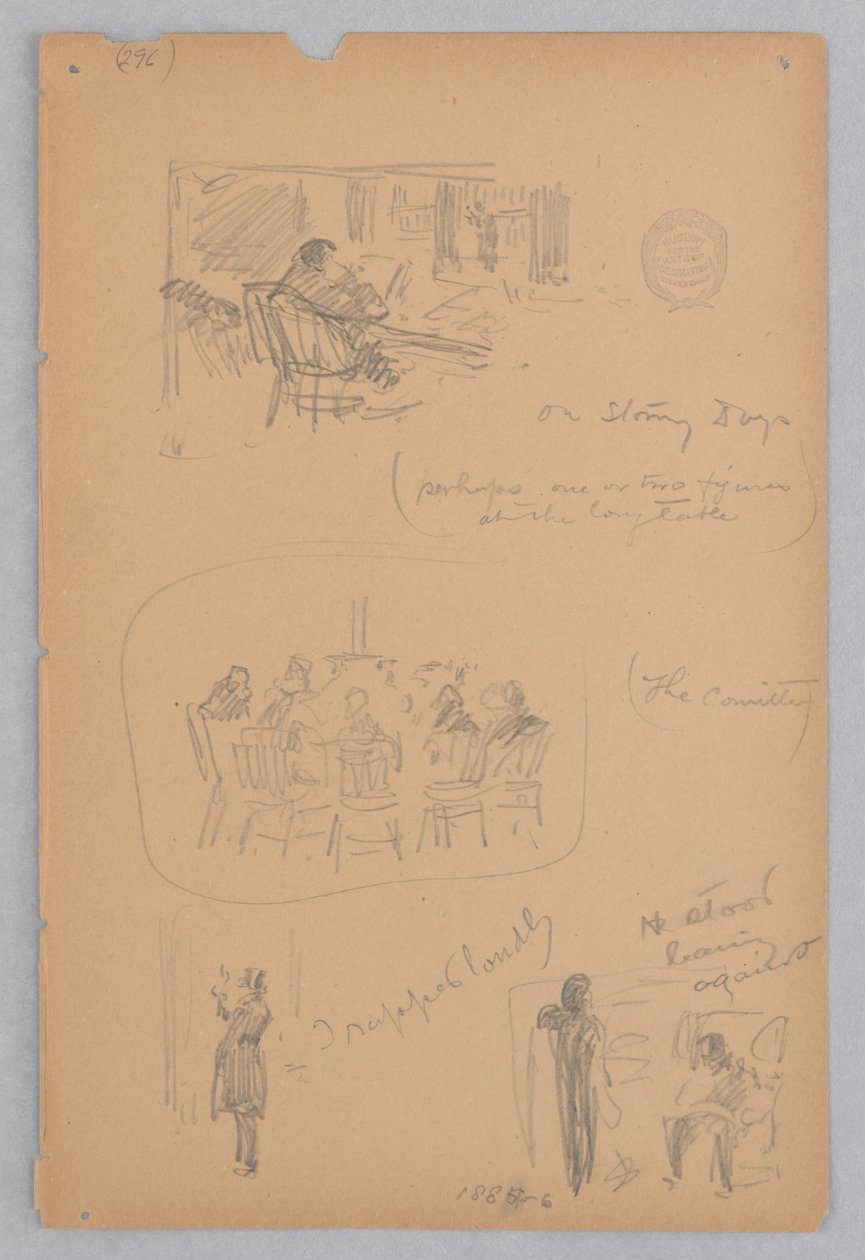 (296)
MUSEUM
FOR THE
ARTS OF
DECORATION
COOPER UNION
On Stormy Days
(perhaps one or two figures
at the long table)
(The Comittee)
I rapped loudly
He stood
leaning
against
1885-6